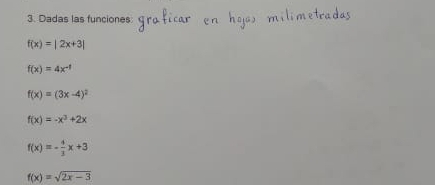 3. Dadas las funciones: graficar en hojas milimetradas
f(x) = | 2x+3|
f(x) = 4x⁻¹
f(x) = (3x -4)²
f(x) = -x³ +2x
f(x) = -4/3 x +3
f(x) = √(2x − 3)